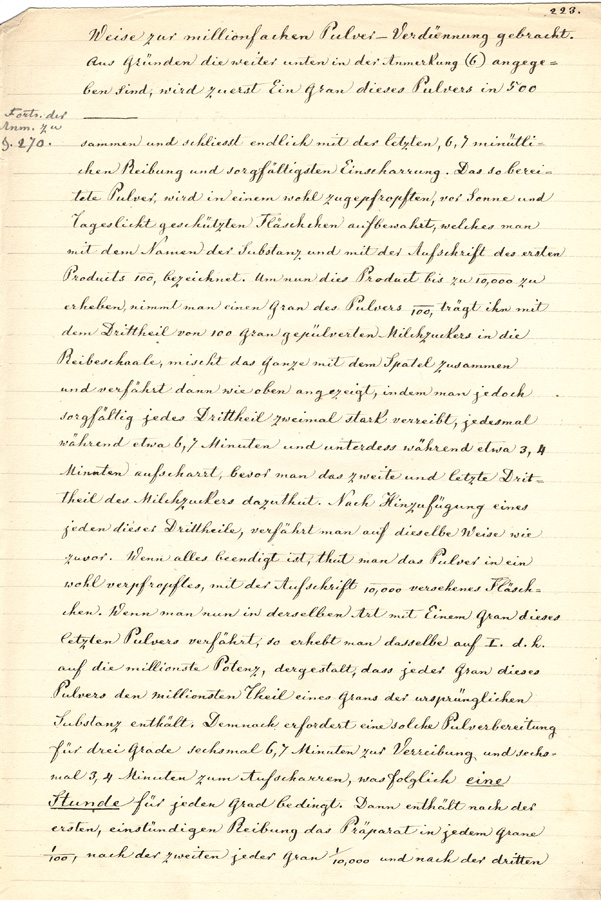 223.
Weise zur millionfachen Pulver-Verdünnung gebracht.
Aus Gründen die weiter unten in der Anmerkung (6) angege=
ben sind, wird zuerst Ein Gran dieses Pulvers in 500
Forts. der
Anm. zu
§. 270.
sammen und schliesst endlich mit der letzten, 6, 7 minütli-
chen Reibung und sorgfältigsten Einscharrung. Das so berei-
tete Pulver, wird in einem wohl zugepfropften, vor Sonne und
Tageslicht geschützten Fläschchen aufbewahrt, welches man
mit dem Namen der Substanz und mit der Aufschrift des ersten
Products 100, bezeichnet. Um nun dies Product bis zu 10,000 zu
erheben, nimmt man einen Gran des Pulvers 100, trägt ihn mit
dem Drittheil von 100 Gran gepülverten Milchzuckers in die
Reibeschaale, mischt das Ganze mit dem Spatel zusammen
und verfährt dann wie oben angezeigt, indem man jedoch
sorgfältig jedes Drittheil zweimal stark verreibt, jedesmal
während etwa 6, 7 Minuten und unterdess während etwa 3, 4
Minuten aufscharrt, bevor man das zweite und letzte Drit=
theil des Milchzuckers dazuthut. Nach Hinzufügung eines
jeden dieser Drittheile, verfährt man auf dieselbe Weise wie
zuvor. Wenn alles beendigt ist, thut man das Pulver in ein
wohl verpfropftes, mit der Aufschrift 10,000 versehenes Fläsch=
chen. Wenn man nun in derselben Art mit Einem Gran dieses
letzten Pulvers verfährt, so erhebt man dasselbe auf I. d. h.
auf die millionste Potenz, dergestalt, dass jeder Gran dieses
Pulvers den millionsten Theil eines Grans der ursprünglichen
Substanz enthält. Demnach erfordert eine solche Pulverbereitung
für drei Grade sechsmal 6, 7 Minuten zur Verreibung und sechs-
mal 3, 4 Minuten zum Aufscharren, was folglich eine
Stunde für jeden Grad bedingt. Dann enthält nach der
ersten, einstündigen Reibung das Präparat in jedem Grane
1/100, nach der zweiten jeder Gran 1/10,000 und nach der dritten